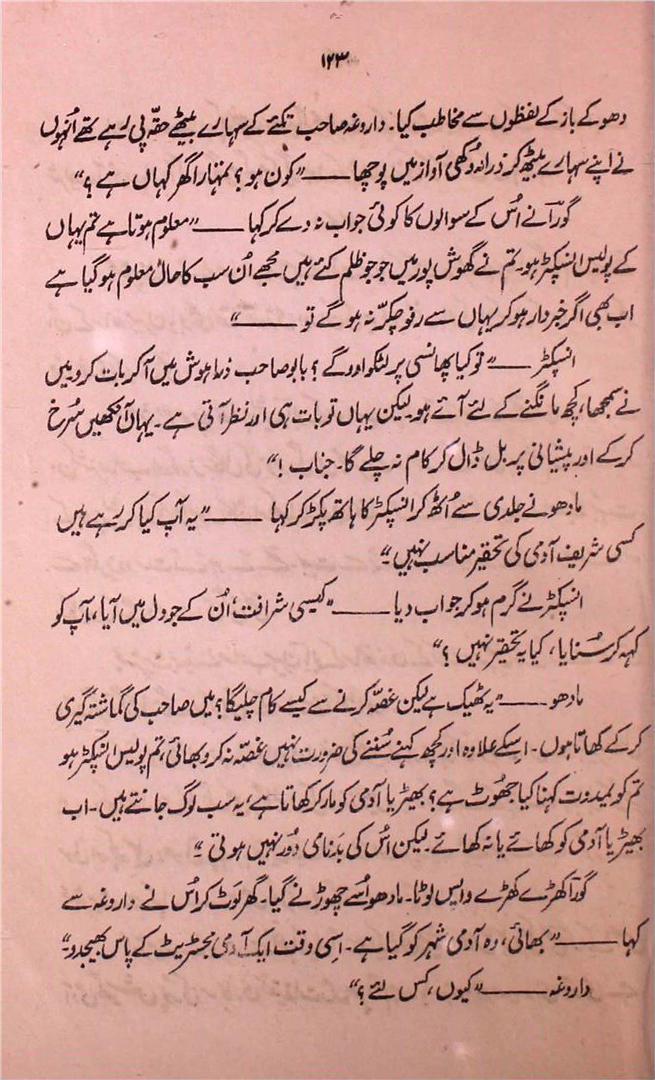 ۱۲۳
دھوکے باز کے لفظوں سے مخاطب کیا۔ داروغہ صاحب تکئے کے سہارے بیٹھے حقہ پی رہے تھے اُنہوں
نے اپنے سہارے بیٹھ کر ذرا اندوکھی آواز میں پوچھا —— "کون ہو؟ تمہارا گھر کہاں ہے؟"
گورا نے اُس کے سوالوں کا کوئی جواب نہ دے کر کہا —— "معلوم ہوتا ہے تم یہاں
کے پولیس انسپکٹر ہو۔ تم نے گھوش پور میں جو جو ظلم کئے ہیں مجھے اُن سب کا حال معلوم ہو گیا ہے
اب بھی اگر خبردار ہو کر یہاں سے رفو چکر نہ ہو گے تو —— "
انسپکٹر —— "تو کیا پھانسی پر لٹکوا دو گے؟ بابو صاحب ذرا ہوش میں آکر بات کرو میں
نے سمجھا، کچھ مانگنے کے لئے آئے ہو۔ لیکن یہاں تو بات ہی اور نظر آتی ہے۔ یہاں آنکھیں سُرخ
کر کے اور پیشانی پر بل ڈال کر کام نہ چلے گا۔ جناب!"
مادھو نے جلدی سے اُٹھ کر انسپکٹر کا ہاتھ پکڑ کر کہا —— "یہ آپ کیا کر رہے ہیں
کسی شریف آدمی کی تحقیر مناسب نہیں۔"
انسپکٹر نے گرم ہو کر جواب دیا —— "کیسی شرافت، اُن کے جو دل میں آیا، آپ کو
کہہ کر سُنایا، کیا یہ تحقیر نہیں؟"
مادھو —— "یہ ٹھیک ہے لیکن غصّہ کرنے سے کیسے کام چلیگا؟ میں صاحب کی گماشتہ گیری
کر کے کھاتا ہوں۔ اسکے علاوہ اور کچھ کہنے سُننے کی ضرورت نہیں غصّہ نہ کرو بھائی، تم پولیس انسپکٹر ہو
تم کو یمدوت کہنا کیا جھوٹ ہے؟ بھیڑیا آدمی کو مار کر کھاتا ہے، یہ سب لوگ جانتے ہیں۔ اب
بھیڑیا آدمی کو کھائے یا نہ کھائے لیکن اُس کی بدنامی دُور نہیں ہوتی۔"
گورا کھڑے کھڑے واپس لوٹا۔ مادھو اُسے چھوڑنے گیا۔ گھر لوٹ کر اُس نے داروغہ سے
کہا —— "بھائی، وہ آدمی شہر کو گیا ہے۔ اسی وقت ایک آدمی مجسٹریٹ کے پاس بھیجدو۔"
داروغہ —— "کیوں، کس لئے؟"